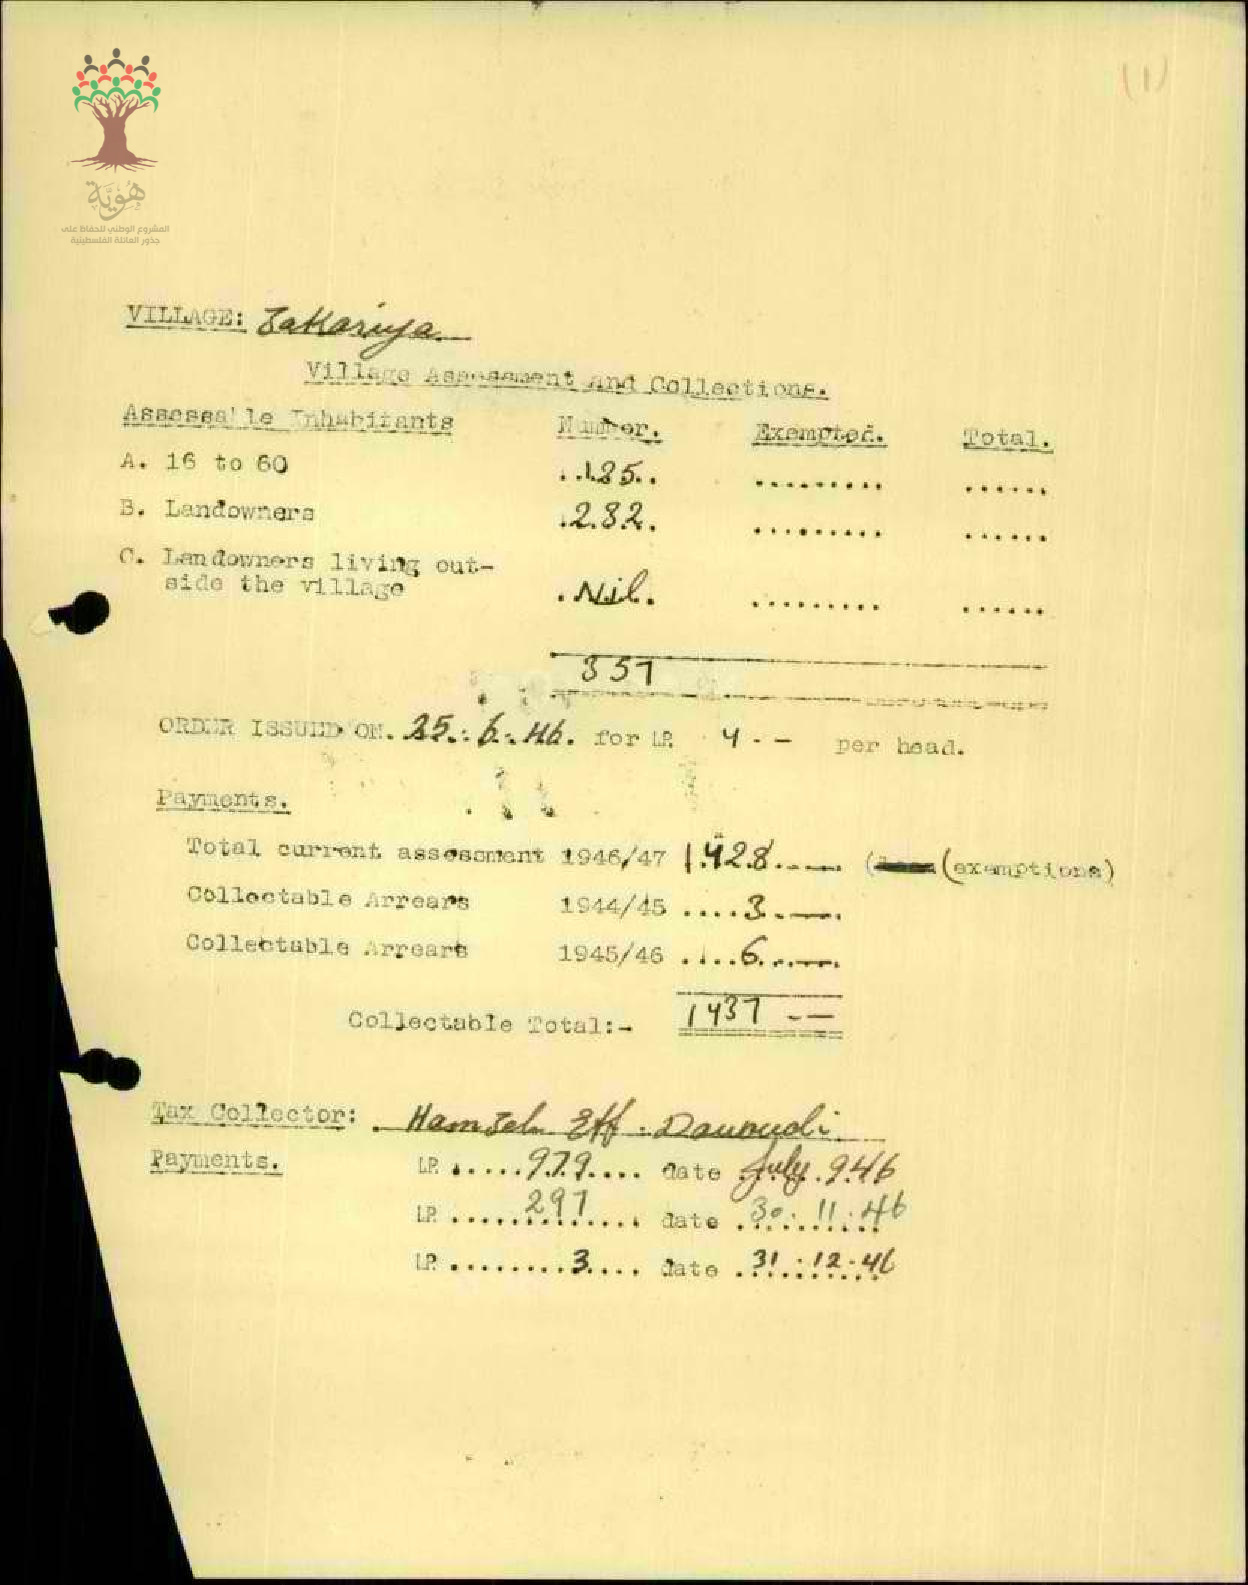 (1)
هُوِيَّة
المشروع الوطني للحفاظ على
جذور العائلة الفلسطينية
VILLAGE: Zakariya
Village Assessment And Collections.
Assessable Inhabitants Number. Exempted. Total.
A. 16 to 60 ..125.. ......... ......
B. Landowners .232. ......... ......
C. Landowners living out-
side the village .Nil. ......... ......
357
ORDER ISSUED ON. 25.:6.:46. for LP. 4 - - per head.
Payments.
Total current assessment 1946/47 1.428.-- (exemptions)
Collectable Arrears 1944/45 ....3.--.
Collectable Arrears 1945/46 ....6..--.
Collectable Total:- 1437 --
Tax Collector: Hamzeh Eff. Daoudi
Payments. LP......979.... date July.946
LP. ......297...... date 30.11.46
LP. ........3.... date 31.12.46